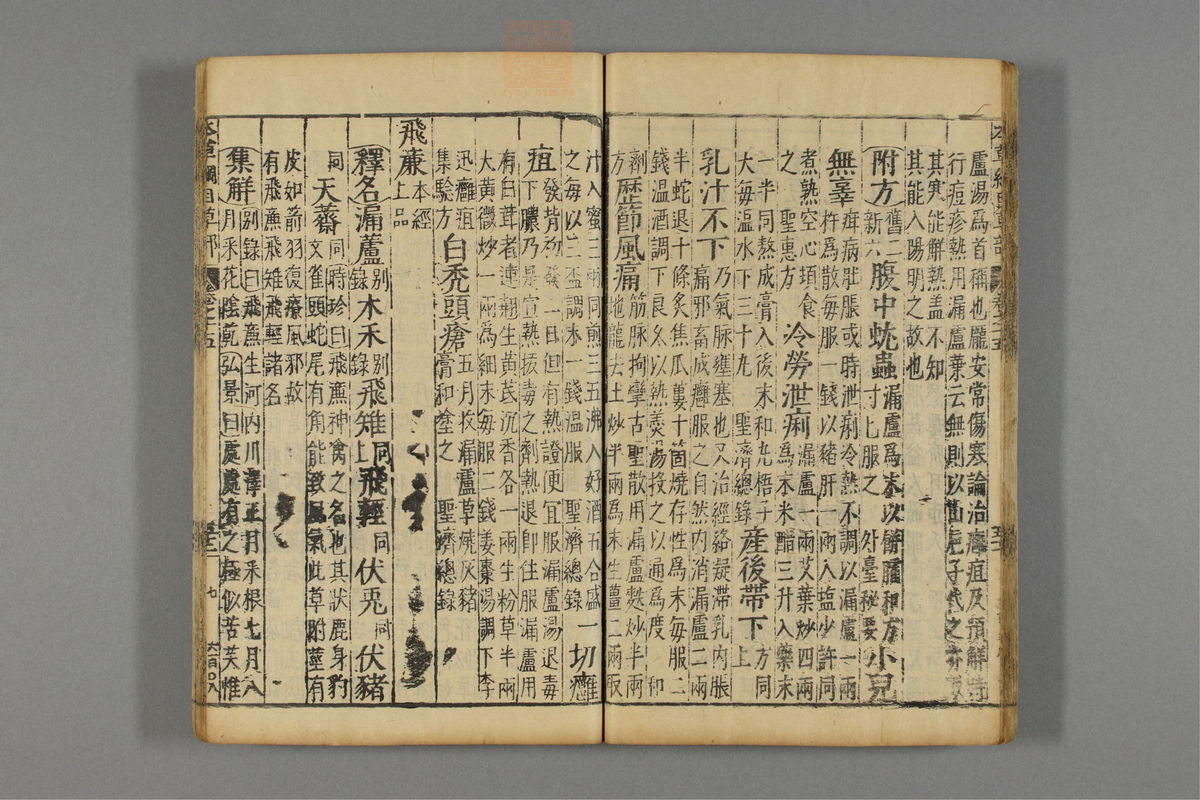 盧湯為首稱也龐安常傷寒論治癰疽及預解時
行痘疹熱用漏盧葉云無則以山梔子代之亦取
其寒能解熱盖不知
其能入陽明之故也
附方舊二新六腹中蚘蟲漏盧為末以餅臛和方寸匕服之外臺秘要小兒
無辜疳病肚脹或時泄痢冷熱不調以漏盧一兩杵為散每服一錢以猪肝一兩入塩少許同
煮熟空心頓食之聖惠方冷勞泄痢漏盧一兩艾葉炒四兩為末米醋三升入藥末
一半同熬成膏入後末和丸梧子大每溫水下三十丸聖濟總錄產後帶下方同上
乳汁不下乃氣脉壅塞也又治經絡凝滯乳內脹痛邪畜成癰服之自然內消漏盧二兩
半蛇退十條炙焦瓜蔞十箇燒存性為末每服二錢溫酒調下良久以熱羹湯投之以通為度和
劑方歷節風痛筋脉拘攣古聖散用漏盧麩炒半兩地龍去土炒半兩為末生薑二兩取
汁入蜜三兩同煎三五沸入好酒五合盛之每以三盃調末一錢溫服聖濟總錄一切癰
疽發背初發二日但有熱證便宜服漏盧湯退毒下膿乃是宣熱拔毒之劑熱退卽住服漏盧用
有白茸者連翹生黃芪沉香各一兩生粉草半兩大黃微炒一兩為細末每服二錢姜棗湯調下李
迅癰疽集驗方白禿頭瘡五月收漏盧草燒灰猪膏和塗之聖濟總錄
飛廉本經上品
釋名漏蘆別錄木禾別錄飛雉同上飛輕同伏兎同伏豬
同天薺同時珍曰飛廉神禽之名也其狀鹿身豹文雀頭蛇尾有角能致風氣此草附莖有
皮如箭羽復療風邪故有飛廉飛雉飛輕諸名
集解別錄曰飛廉生河內川澤正月采根七月八月采花陰乾弘景曰處處有之極似苦芺惟